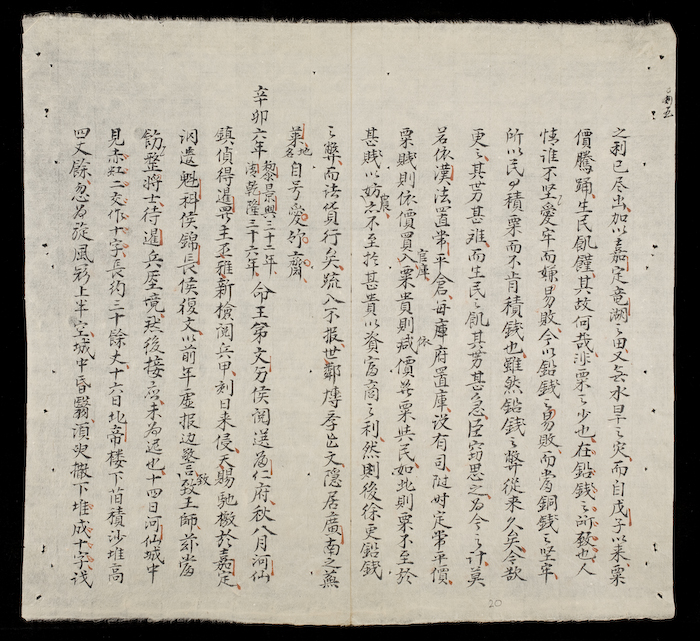 之利已尽出加以嘉定竜湖之田又無水旱之灾而自戊子以来粟
價騰踊生民飢饉其故何哉非粟之少也在鉛錢之所致也人
情誰不坚愛牢而嫌易敗今以鉛錢之易敗而當銅錢之坚牢
所以民多積粟而不肯積錢也雖然鉛錢之弊從来久矣今欲
更之其势甚难而生民之飢其势甚急臣窃思之為今之計莫
若依漢法置常平倉每庫府置庫設有司附时定常平價
官庫
依
粟賎則依價買入粟貴則减價発粟與民如此則粟不至於
甚賎以妨農亦不至於甚貴以資富商之利然則後徐更鉛錢
之弊而法貨行矣疏入不报世鄰博学能文隱居廣南之燕
地名
自号愛竹齋
辛卯六年
黎景興三十二年
清乾隆三十六年
命王第文勻侯閱選為仁府秋八月河仙
鎮偵得暹罗主丕雅新檢閱兵甲刻日来侵天賜馳檄於嘉定
魁科侯錦長侯復文以前年虚报边警言致王師茲當
飭整将士待暹兵压境然後接应未為迟也十四日河仙城中
見赤虹二交作十字長約三十餘丈十六日北帝楼下旧積沙堆高
四丈餘忽為旋風移上半空城中昏翳須臾撒下堆成十字识
20